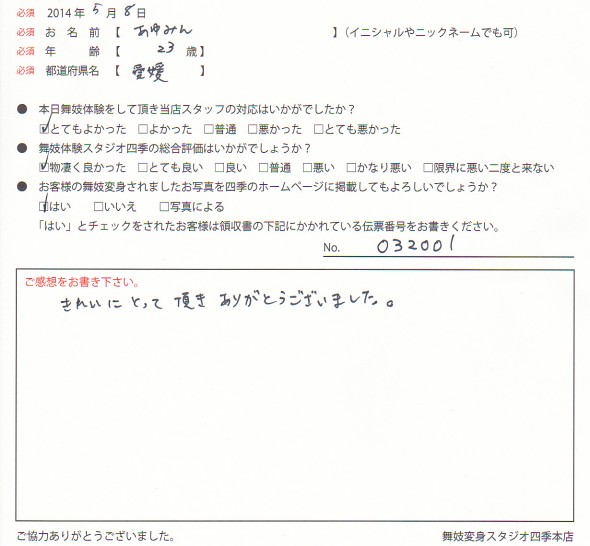 必須 2014年 5月 8日
必須 お名前【 あゆみん 】(イニシャルやニックネームでも可)
必須 年齢【 23 歳】
必須 都道府県名【 愛媛 】
● 本日舞妓体験をして頂き当店スタッフの対応はいかがでしたか?
☑とてもよかった □よかった □普通 □悪かった □とても悪かった
● 舞妓体験スタジオ四季の総合評価はいかがでしょうか?
☑物凄く良かった □とても良い □良い □普通 □悪い □かなり悪い □限界に悪い二度と来ない
● お客様の舞妓変身されましたお写真を四季のホームページに掲載してもよろしいでしょうか?
☑はい □いいえ □写真による
「はい」とチェックをされたお客様は領収書の下記にかかれている伝票番号をお書きください。
No. 032001
ご感想をお書き下さい。
きれいにとって頂きありがとうございました。
ご協力ありがとうございました。 舞妓変身スタジオ四季本店